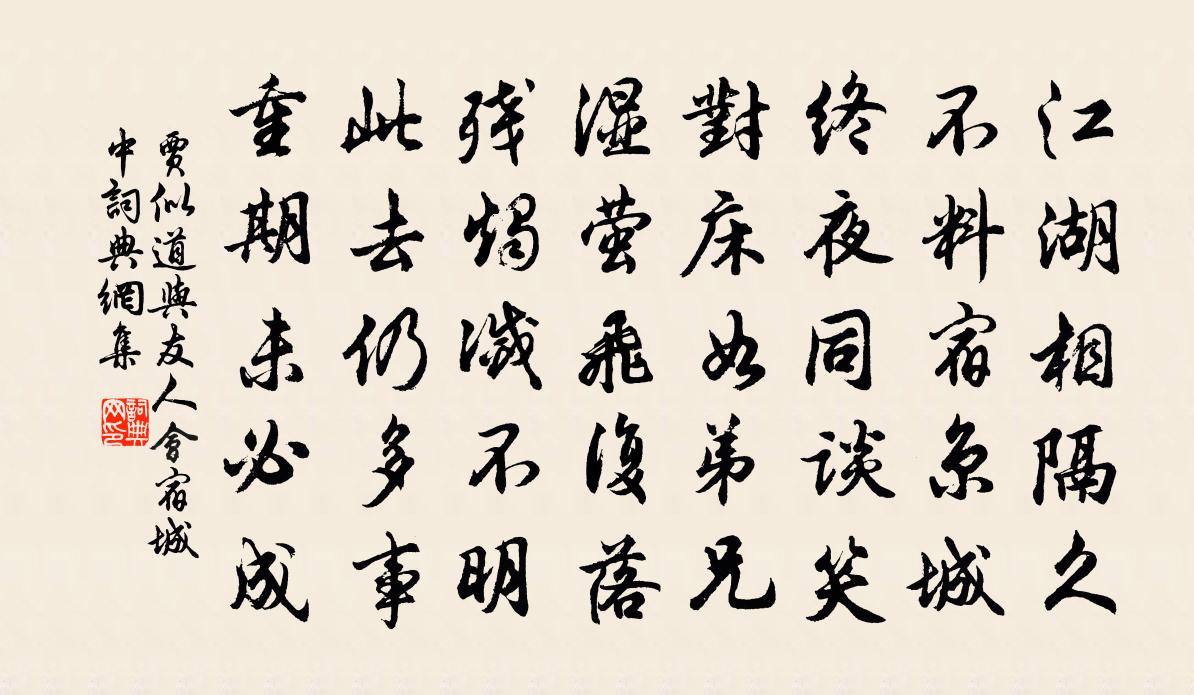 江湖相隔久
不料宿京城
终夜同談笑
對床如弟兄
湿萤飛復落
残燭滅不明
此去仍多事
重期未必成
賈似道與友人會宿城
中詞典網集
詞典
网印